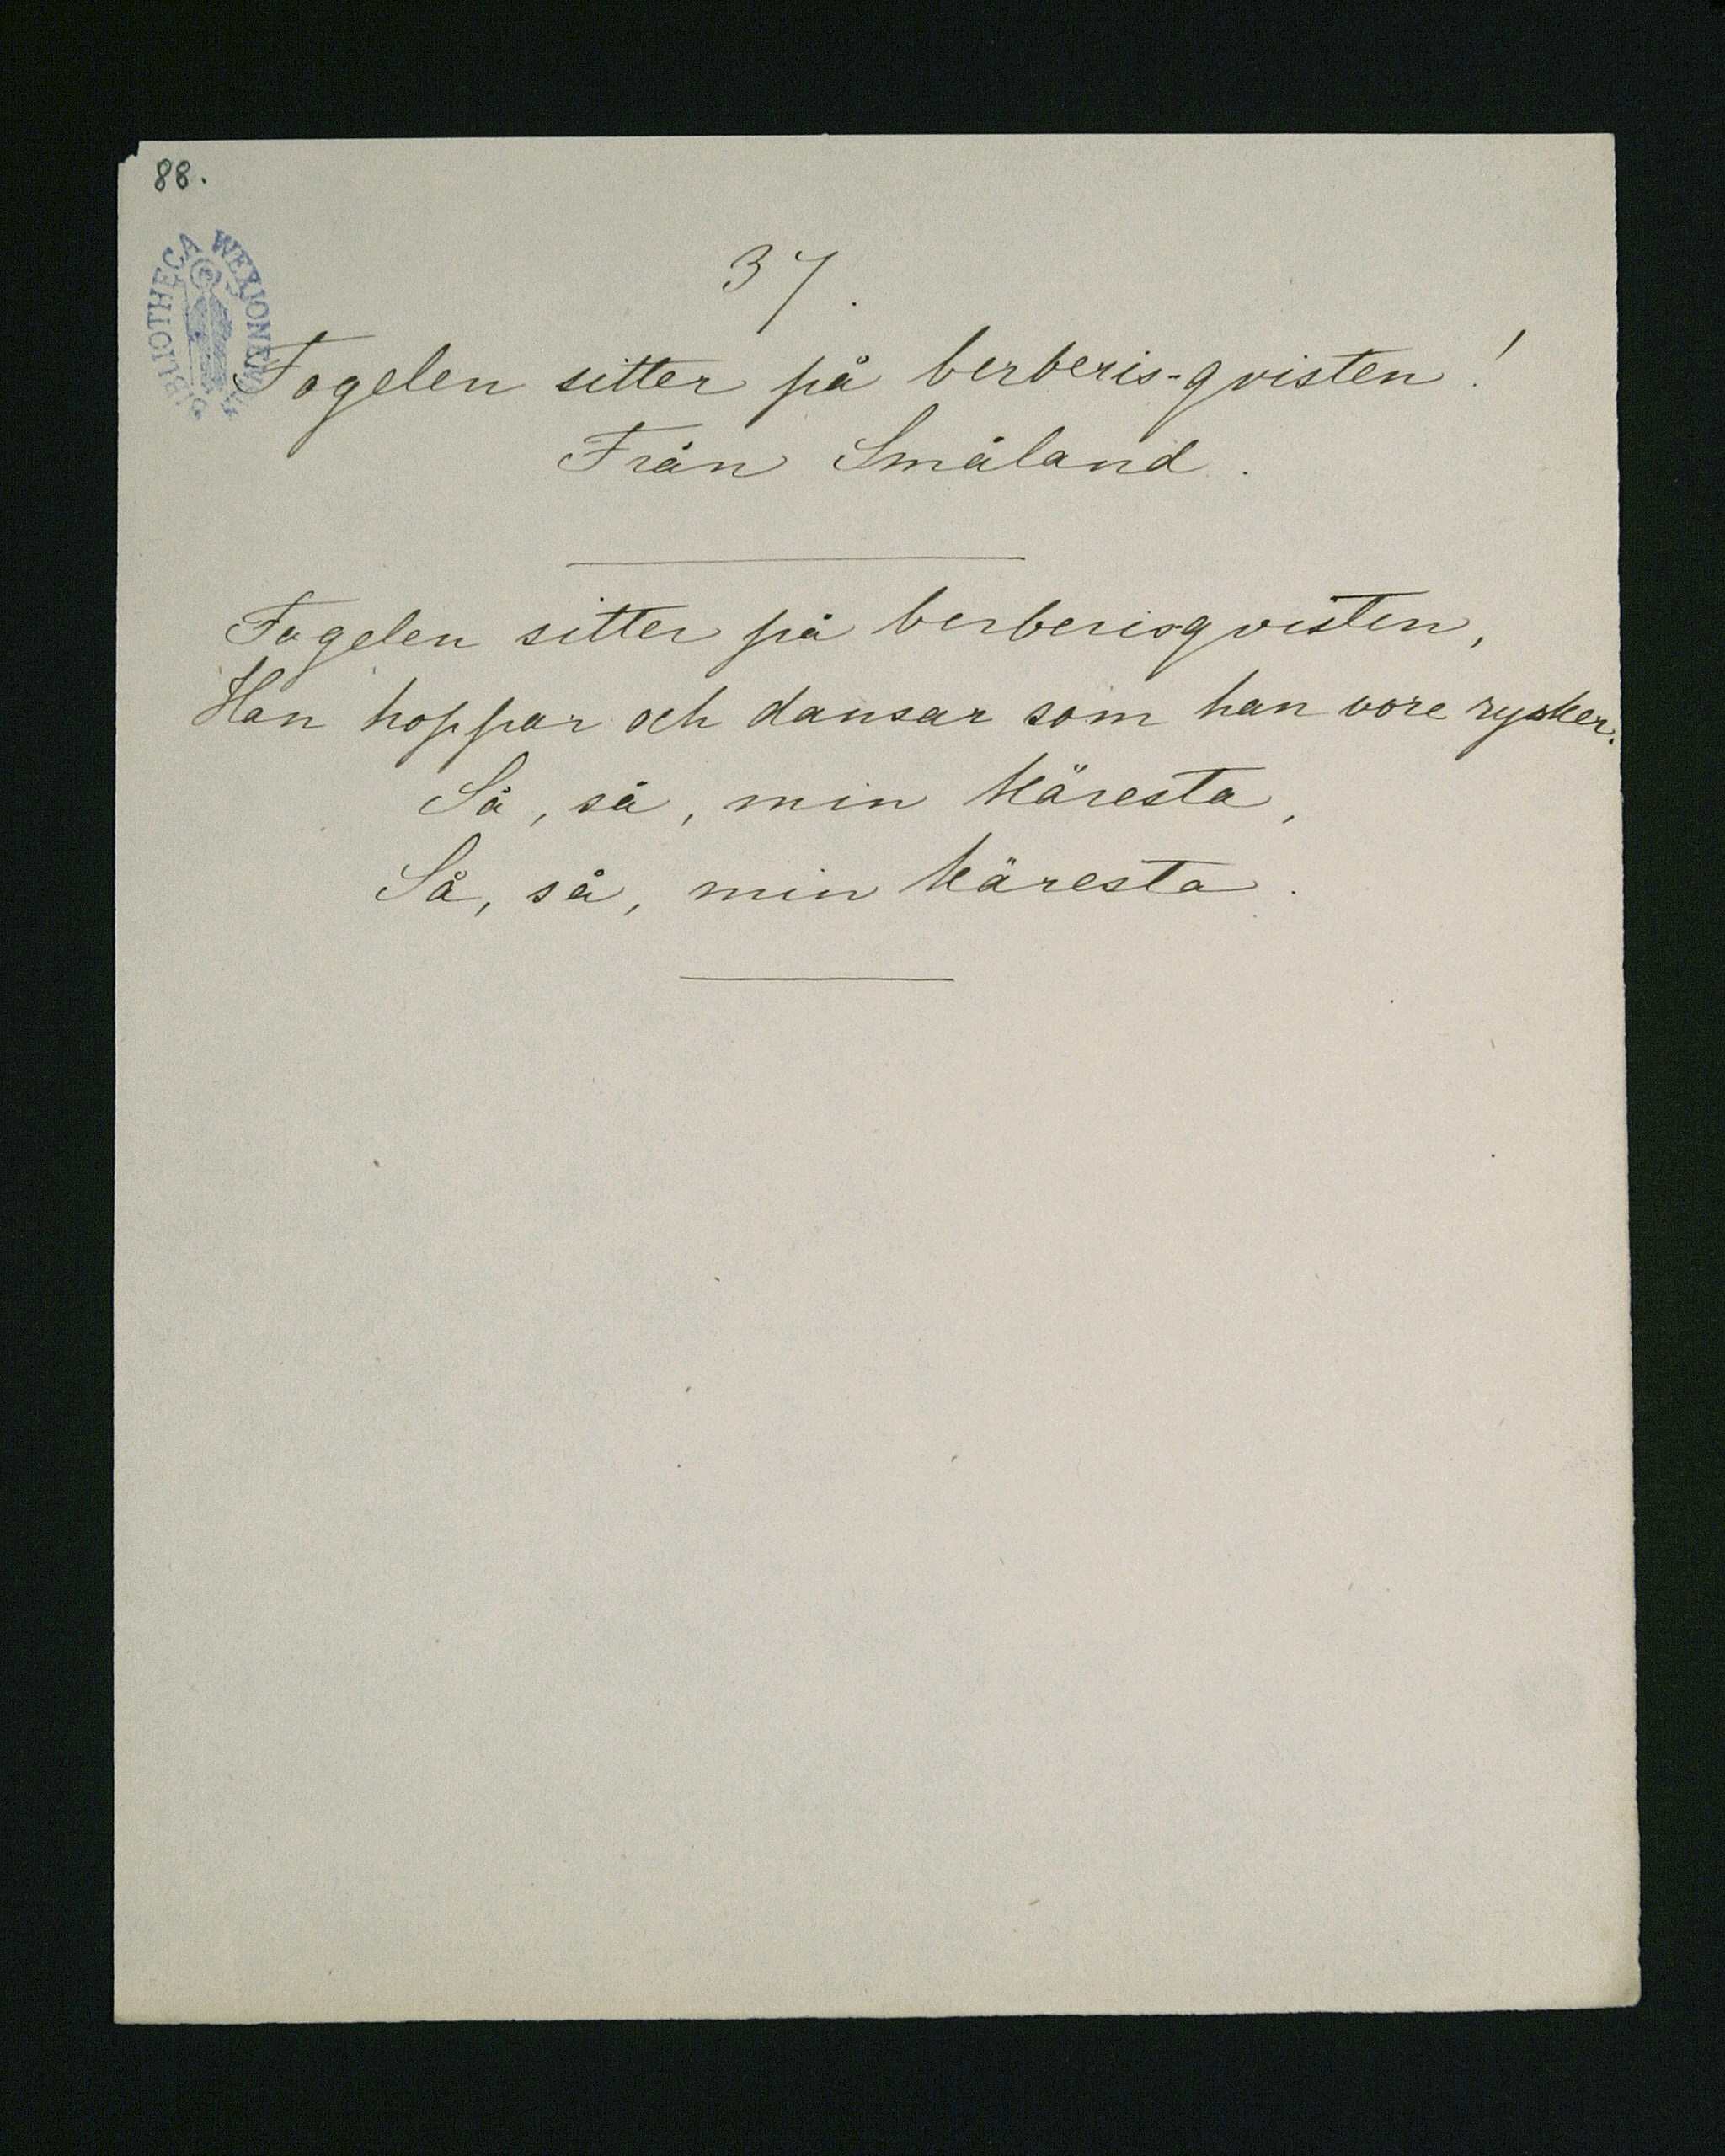 88.
BIBLIOTHECA WEXIONENSIS
37.
Fogelen sitter på berberis-qvisten!
Från Småland.
Fogelen sitter på berberisqvisten,
Han hoppar och dansar som han vore rysker.
Så, så, min käresta,
Så, så, min käresta.